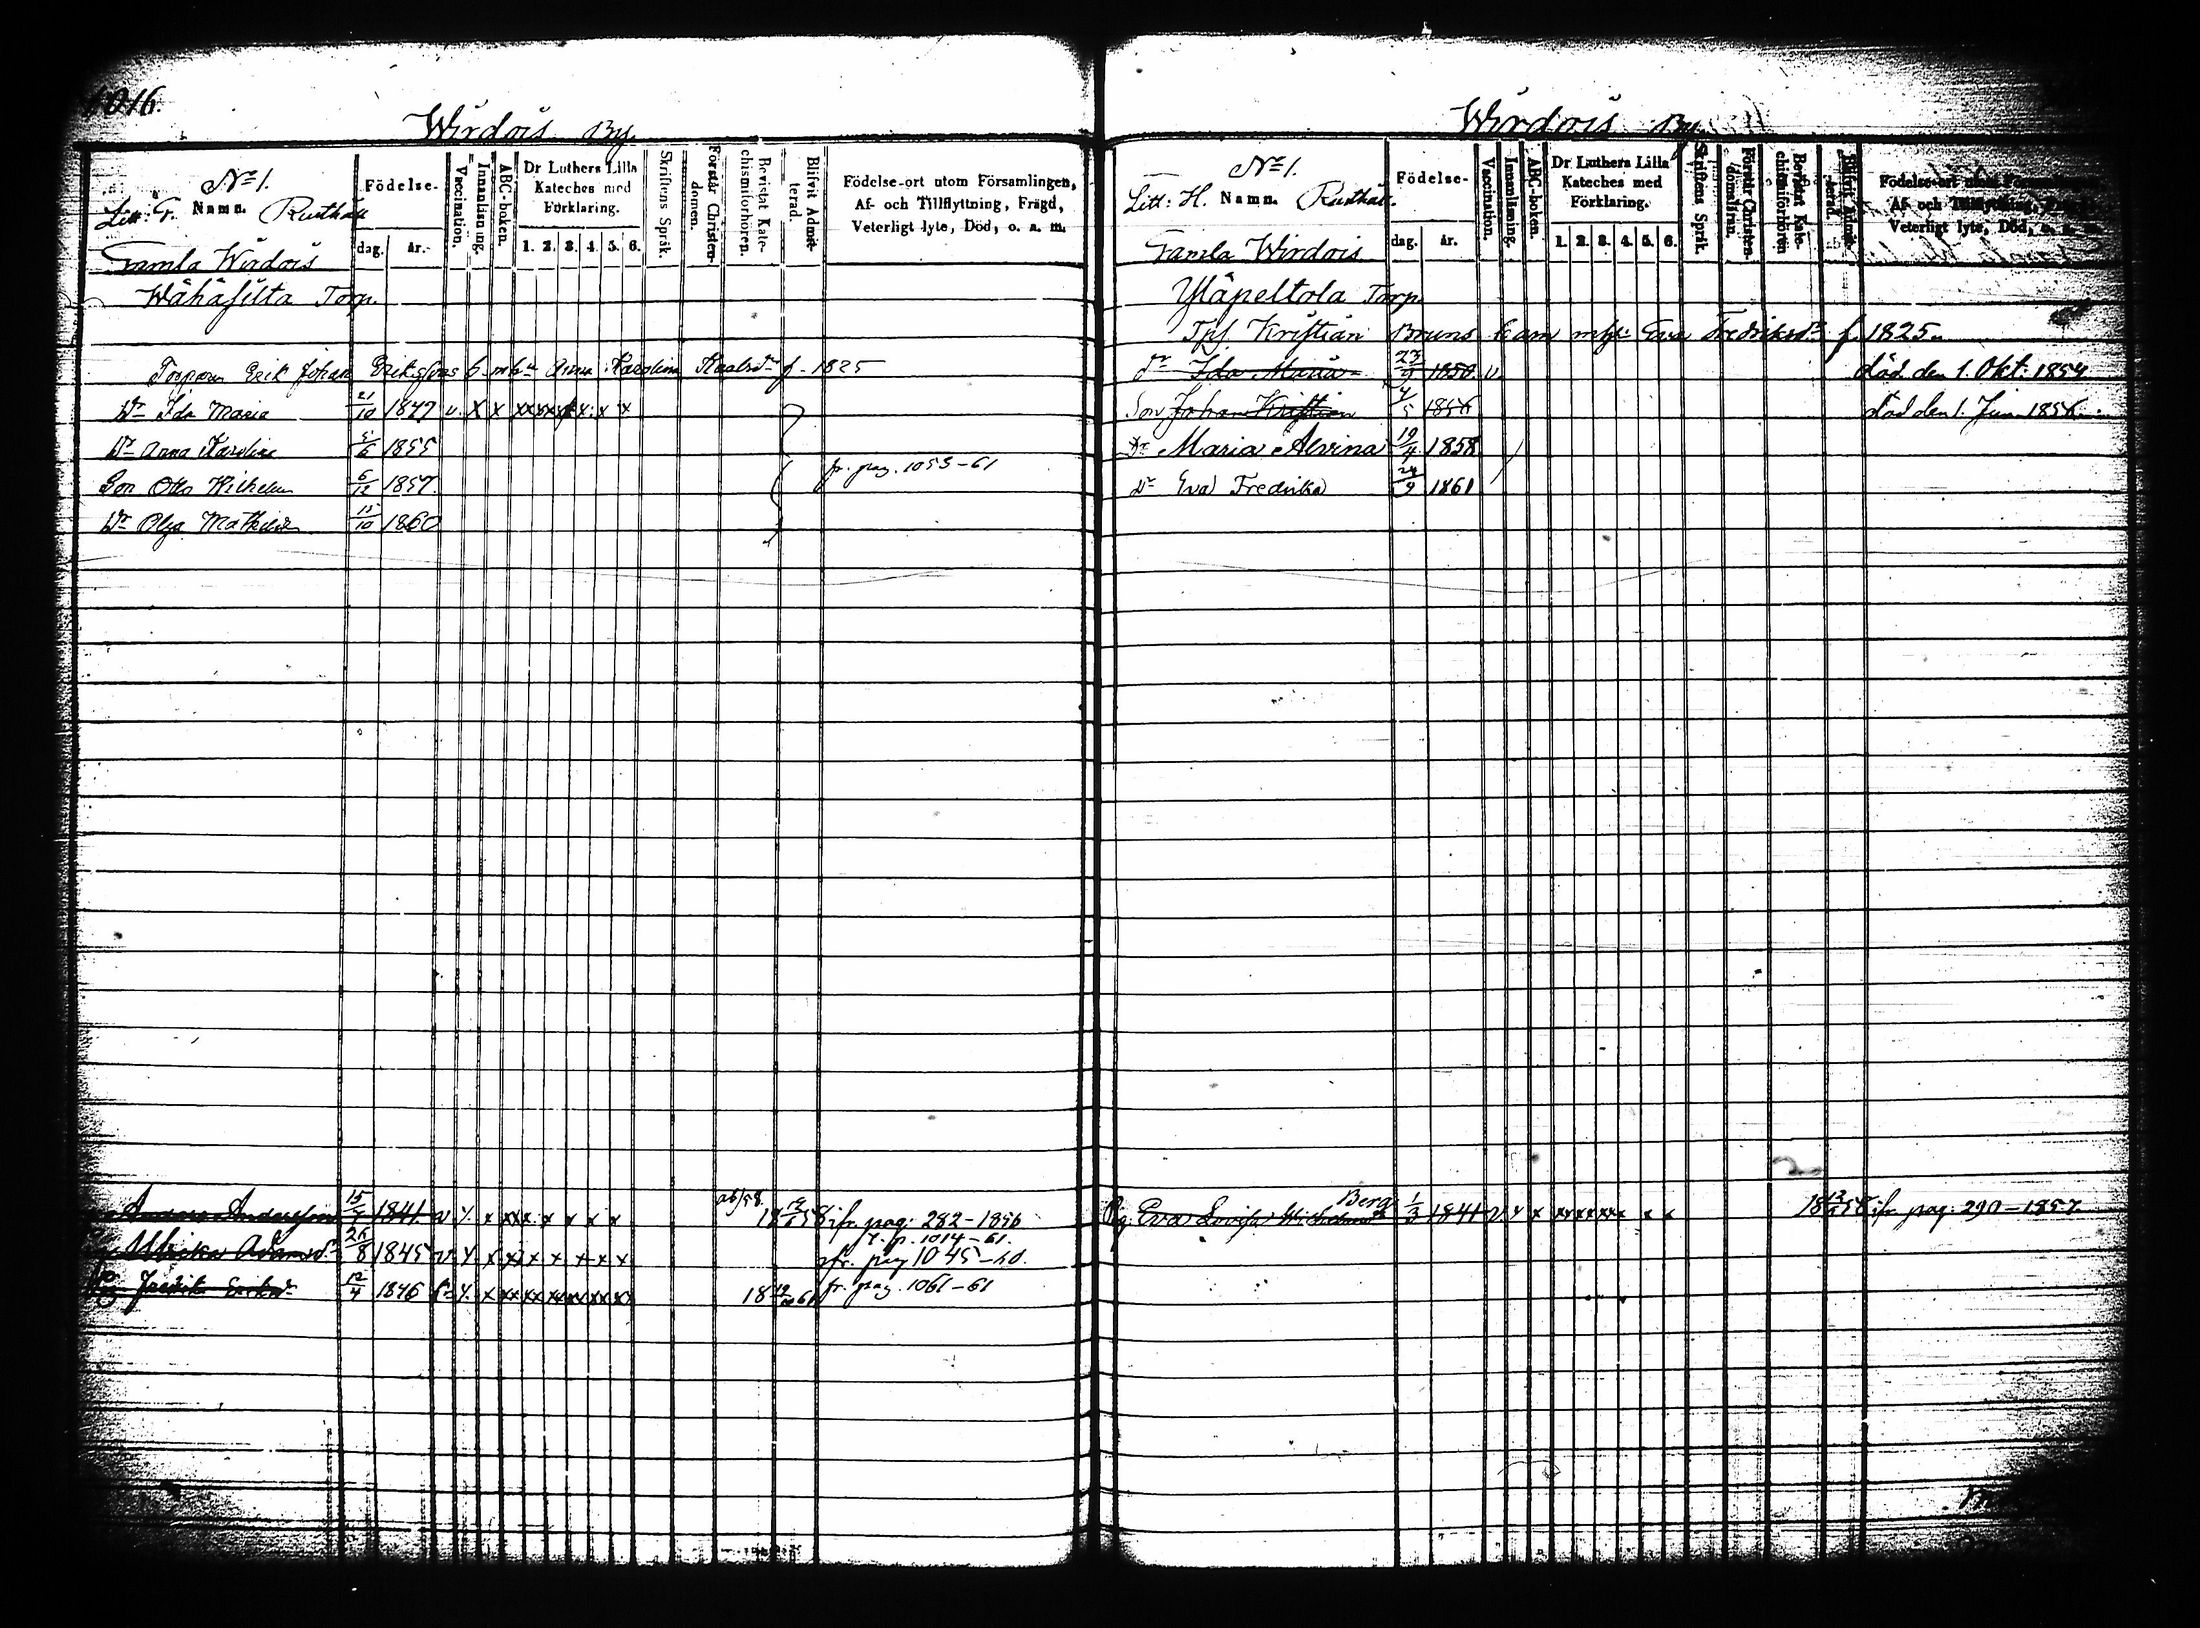 1016.
Wirdois By.
Nº 1.
Litt: G. Namn. Rusthåll
Födelse-
dag. år.
Vaccination.
Innanläsning.
ABC-boken.
Dr Luthers Lilla Kateches med Förklaring.
1. 2. 3. 4. 5. 6.
Skriftens Språk.
Förstår Christendomen.
Bevistat Katechismiförhören.
Blifvit Admitterad.
Födelse-ort utom Församlingen,
Af- och Tillflyttning, Frägd,
Veterligt lyte, Död, o. a. m.
Gamla Wirdois
Wähäsilta Torp.
Torparen Erik Johan Erikssons b. Anna Karolina Karlsdr f. 1825
Dr Ida Maria 21/10 1847 v. X x xx xx x x x
Dr Anna Karolina 5/6 1855
Son Otto Wilhelm 6/12 1857
fr. pag. 1053-61
Dr Olga Mathilda 15/10 1860
Anders Andersson 15/4 1841 v y. x xxx x x x x 18 58 ifr. pag: 282-1856
t. p. 1014-61.
Ulrika Adamsdr 26/8 1845 v. y. x xx x x x x x fr. pag 1045-60.
Fredrik 12/4 1846 y. x xx xx xx xx xx 18 61 fr. pag. 1061-61
Wirdois By.
Nº 1.
Litt: H. Namn. Rusthåll.
Födelse-
dag. år.
Vaccination.
Innanläsning.
ABC-boken.
Dr Luthers Lilla Kateches med Förklaring.
1. 2. 3. 4. 5. 6.
Skriftens Språk.
Förstår Christendomsläran.
Bevistat Katechismiförhören
Blifvit Admitterad.
Födelse-ort utom
Af- och Tillflyttning,
Veterligt lyte, Död,
Gamla Wirdois
Yläpeltola Torp
Tpf. Kristian Bruns barn Eva Fredriksdr f. 1825.
Dr Ida Maria 23/9 1850. v. död den 1. Okt. 1854
Son Johan Kristian 4/5 1856 död den 1. Jun. 1856.
Dr Maria Alvina 19/4 1858
Dr Eva Fredrika 24/9 1861
Pig. Eva Lovisa Berg 1/3 1841 v y x xx xx xx x x 18 58 ifr pag. 290-1857.